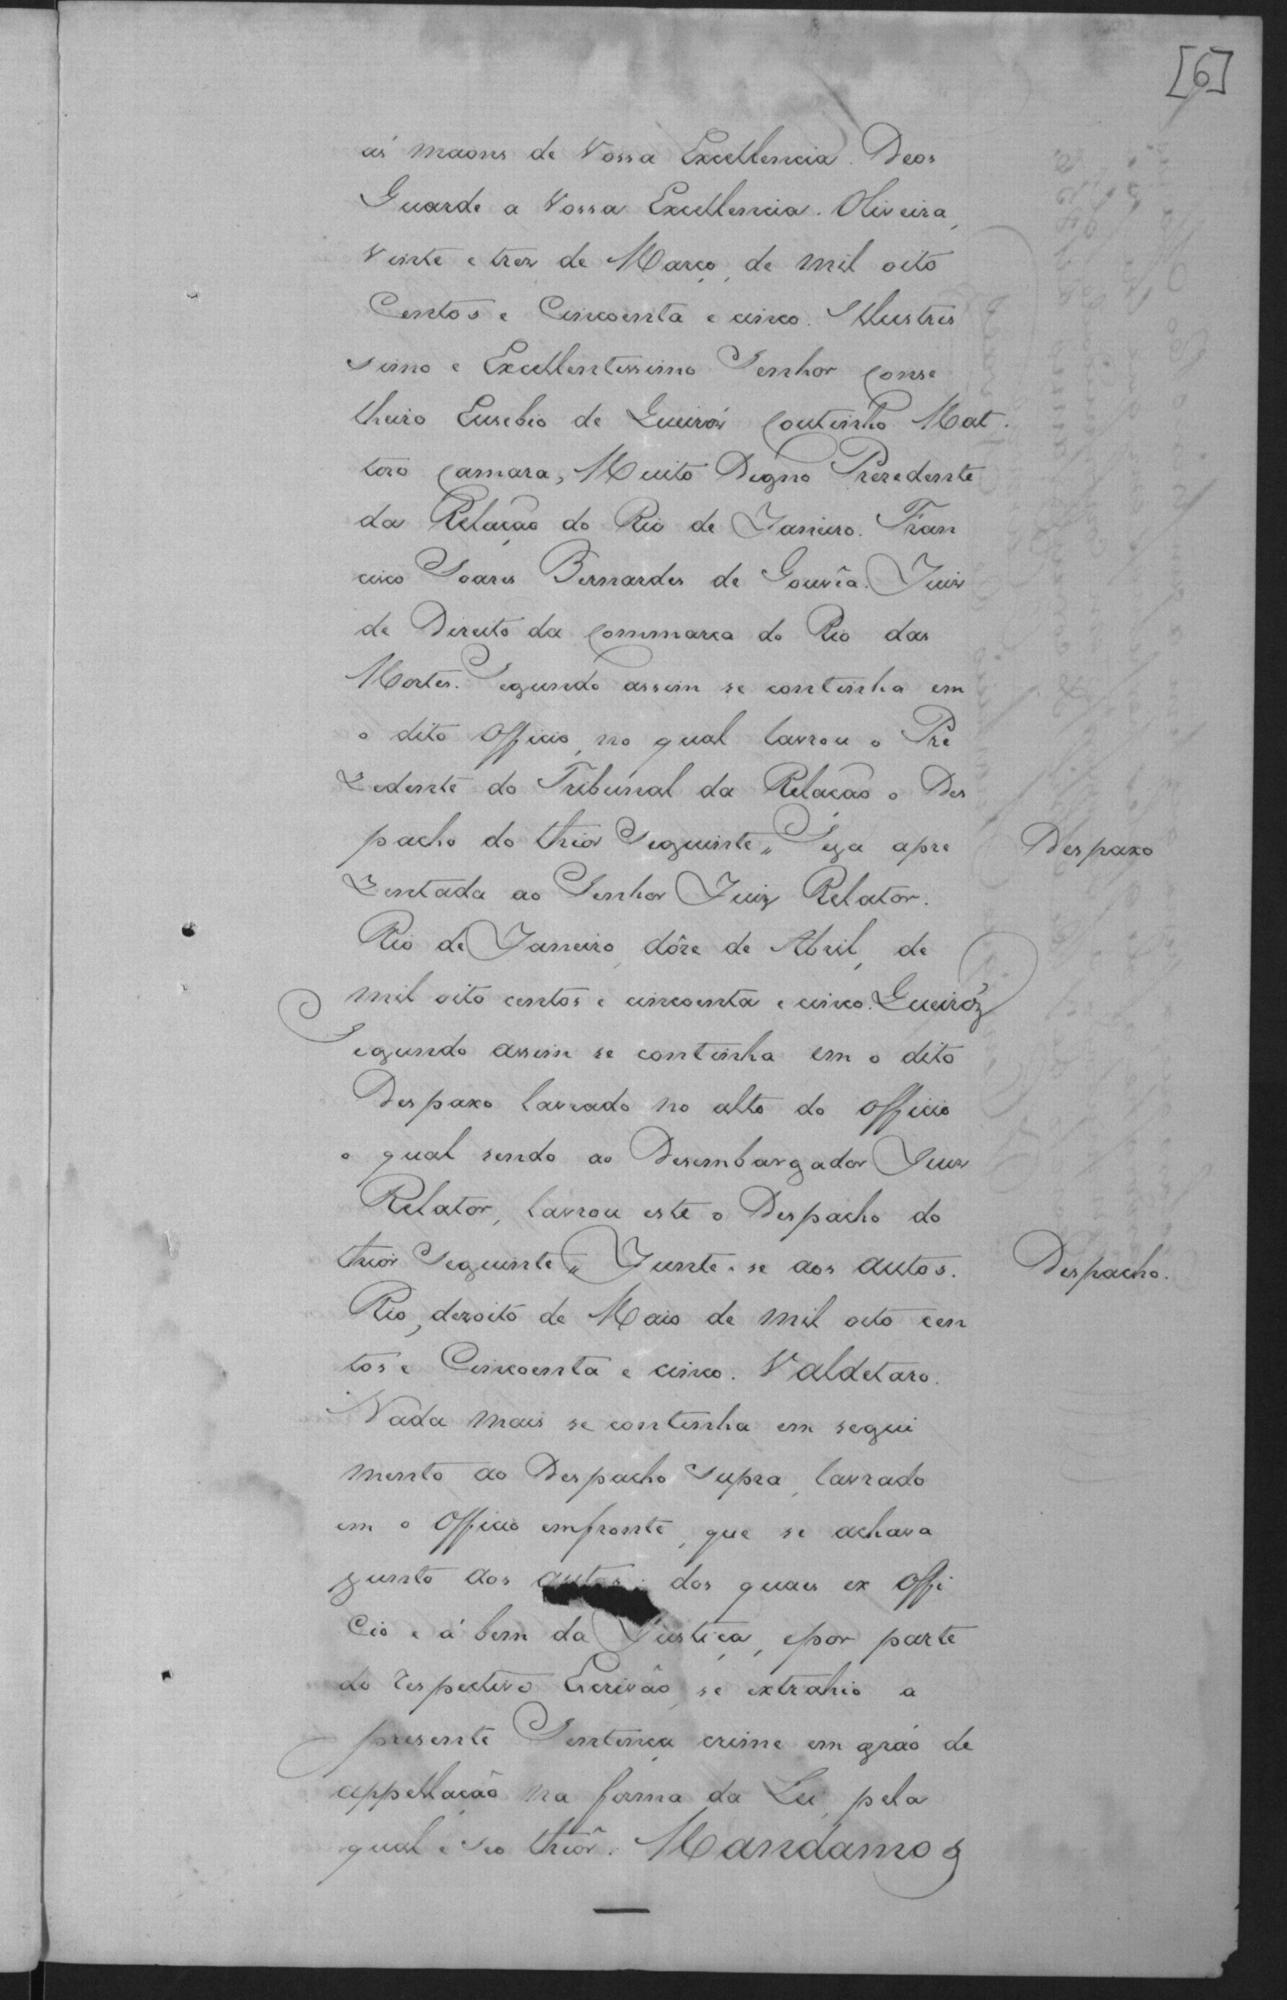 [6]
ás maons de Vossa Excellencia. Deos
Guarde a Vossa Excellencia. Oliveira,
Vinte e trez de Março, de mil oito
Centos e Cincoenta e cinco. Illustris
simo e Excellentissimo Senhor Conse
lheiro Eusebio de Queiróz Coutinho Mat
tozo Camara, Muito Digno Prezedente
da Relação do Rio de Janeiro. Fran
cisco Soares Bernardes de Gouvêa. Juiz
de Direito da Commarca do Rio das
Mortes. Segundo assim se continha em
o dito Officio, no qual lavrou o Pre
Zedente do Tribunal da Relação o Des
pacho do thior Seguinte,, Seja apre
Zentada ao Senhor Juiz Relator.
Despaxo
Rio de Janeiro, dôze de Abril, de
mil oito centos e cincoenta e cinco. Queiróz
Segundo assim se continha em o dito
Despaxo lavrado no alto do officio
o qual sendo ao Desembargador Juiz
Relator, lavrou este o Despacho do
thior Seguinte,, Junte-se aos autos.
Despacho.
Rio, dezoito de Maio de mil oito cen
tos e Cincoenta e cinco. Valdetaro.
Nada mais se continha em segui
mento ao Despacho Supra, lavrado
em o Officio emfronte, que se achava
junto aos autos; dos quaes ex Offi
Cio e á bem da Justiça, e por parte
do respectivo Escrivão, se extrahio a
presente Sentença crime em gráo de
appellação na forma da Lei, pela
qual e seo thiôr. Mandamos